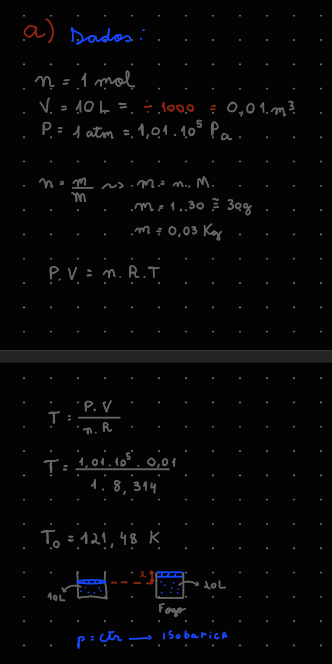 a) Dados:
n = 1 mol
V = 10 L = ÷ 1000 = 0,01 m³
P = 1 atm = 1,01 · 10⁵ Pa
n = m/M ~> m = n. M
m = 1 . 30 ≅ 30g
m = 0,03 Kg
P. V = n. R. T
T = P. V / n. R
T = 1,01 . 10⁵ . 0,01 / 1 . 8,314
T₀ = 121,48 K
10L 20L
Fogo
p = ctr → ISOBARICA